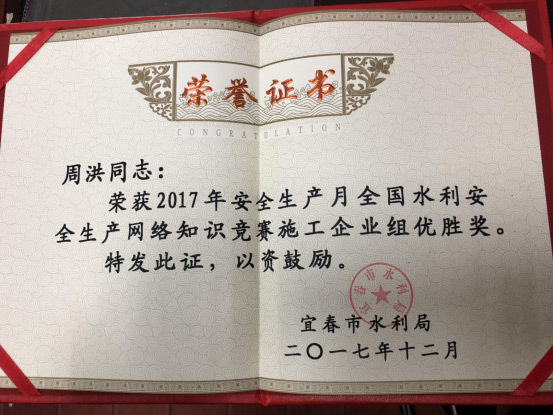 荣誉证书
CONGRATULATION
周洪同志：
荣获2017年安全生产月全国水利安
全生产网络知识竞赛施工企业组优胜奖。
特发此证，以资鼓励。
宜春市水利局
宜春市水利局
二〇一七年十二月